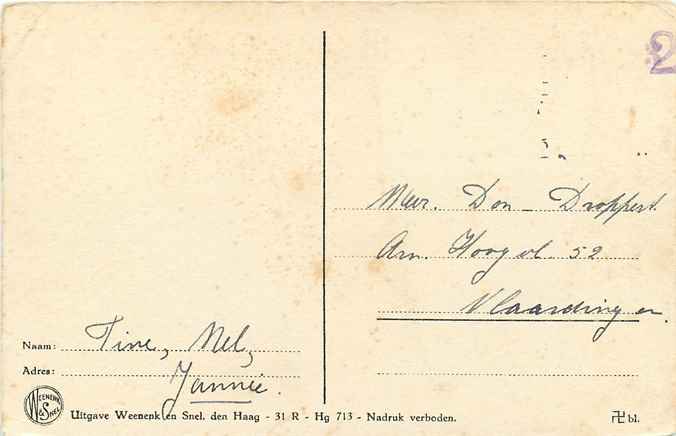 2
Mevr. Don - Droppert.
Arn. Hoog vl. 52
Vlaardingen.
Naam: Tine, Nel,
Adres: Jannie.
WEENENK & SNEL
Uitgave Weenenk en Snel. den Haag - 31 R - Hg 713 - Nadruk verboden.
卍 bl.